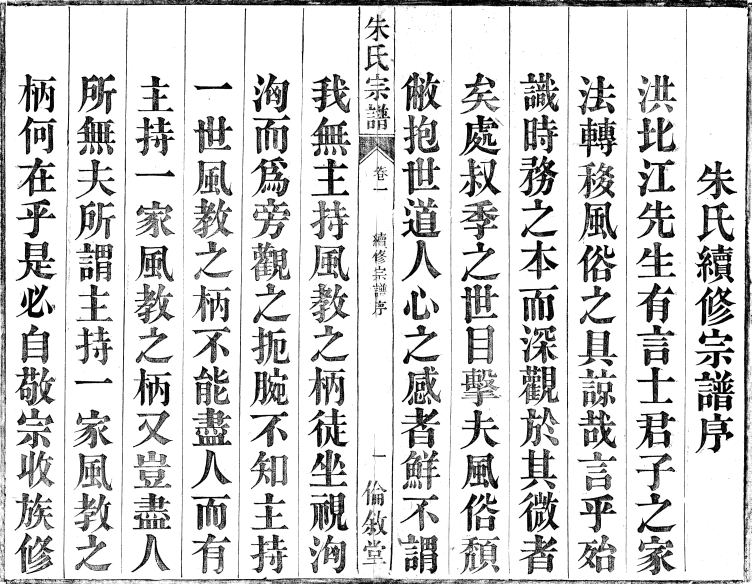 朱氏續修宗譜序
洪北江先生有言士君子之家
法轉移風俗之具諒哉言乎殆
識時務之本而深觀於其微者
矣處叔季之世目擊夫風俗頹
敝抱世道人心之感者鮮不謂
朱氏宗譜
卷一
續修宗譜序
一
倫敘堂
我無主持風教之柄徒坐視洶
洶而爲旁觀之扼腕不知主持
一世風教之柄不能盡人而有
主持一家風教之柄又豈盡人
所無夫所謂主持一家風教之
柄何在乎是必自敬宗收族修